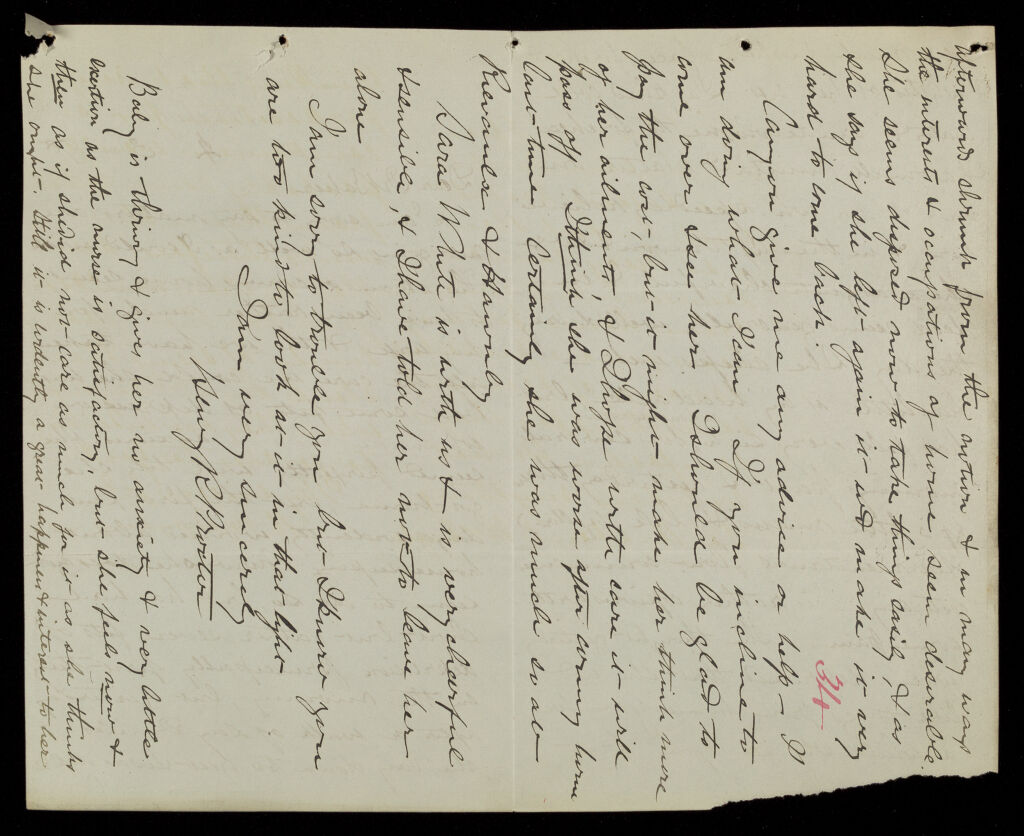 afterwards shrunk from the notion & in many ways
the interests & occupations of home seem desirable.
She seems disposed now to take things easily, & as
she says if she left again it wd make it very
hard to come back.
34
Can you give me any advice or help – I
am doing what I can If you incline to
come over & see her I should be glad to
pay the cost, but it might make her think more
of her ailments, & I hope with care it will
pass off I think she was worse after coming home
last time Certainly she was much so at
& Hornby
Sara White is with us & is very cheerful
& sensible, & I have told her not to leave her
alone
I am sorry to trouble you but I know you
are too kind to look at it in that light
I'm very sincerely
Henry R
Baby is thriving & gives her no anxiety & very little
exertion as the nurse is satisfactory, but she feels now &
then as if she did not care as much for it as she thinks
she ought – Still it is evidently a great happiness & interest to her